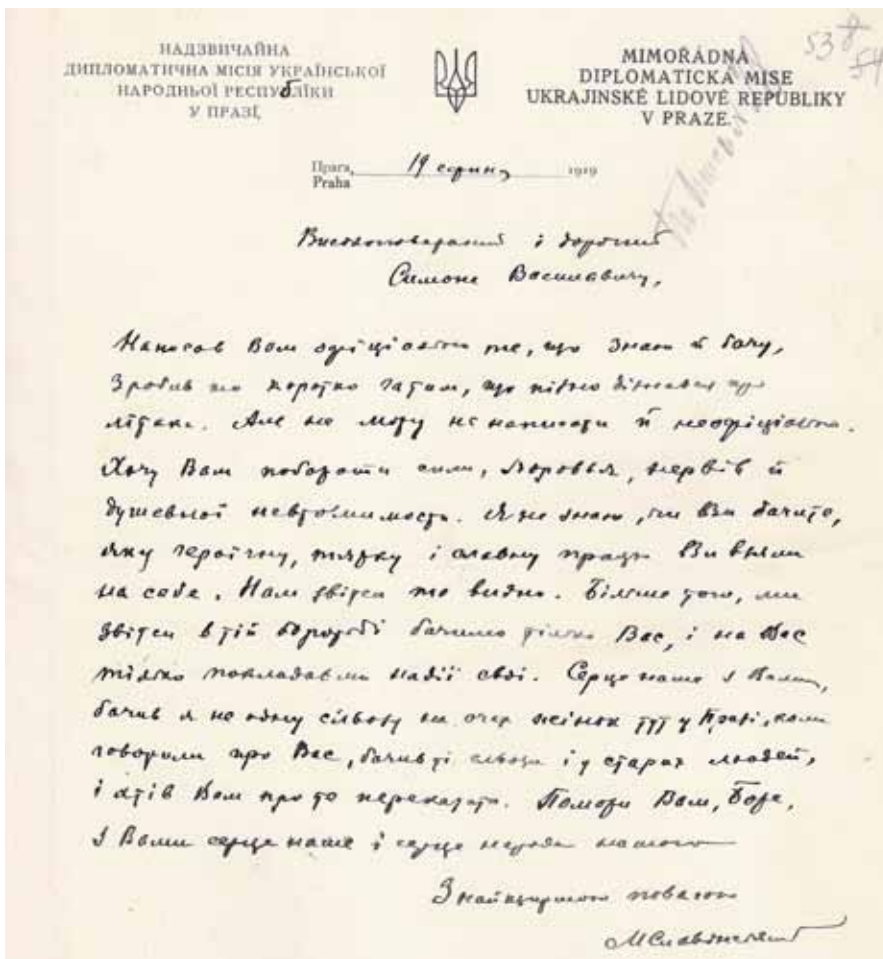 НАДЗВИЧАЙНА
ДИПЛОМАТИЧНА МІСІЯ УКРАЇНСЬКОЇ
НАРОДНЬОЇ РЕСПУБЛІКИ
У ПРАЗІ.
MIMOŘÁDNÁ
DIPLOMATICKÁ MISE
UKRAJINSKÉ LIDOVÉ REPUBLIKY
V PRAZE.
53 8
54
Прага, 19 серпня 1919
Praha
Високоповажний і дорогий
Симоне Василевичу,
Написав Вам офіціально те, що знаю й бачу,
Зробив то коротко, що пізно про
літак. Але не можу не написати й неофіціально.
Хочу Вам побажати сили, здоровья, нервів й
душевної невтомимости. Я не знаю, чи Ви бачите,
яку героїчну, тяжку і славну працю Ви взяли
на себе. Нам звітси то видно. Більше того, ми
звітси в тій боротьбі бачимо тілько Вас, і на Вас
тілько покладаємо надії свої. Серце наше з Вами,
бачив я не одну сльозу на очах жінок тут у Празі, коли
говорили про Вас, бачив ті сльози і у старих людей,
і хтів Вам про то переказати. Поможи Вам, Боже,
З Вами серце наше і серце народа нашого
З найщирішою повагою
МСлавінський